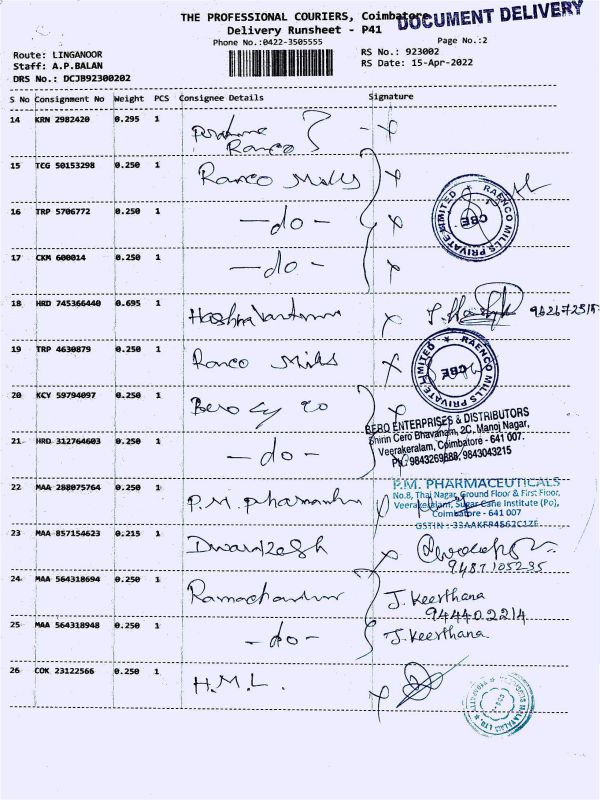 THE PROFESSIONAL COURIERS, Coimbatore
DOCUMENT DELIVERY
Delivery Runsheet - P41
Phone No.:0422-3505555
Page No.:2
Route: LINGANOOR
RS No.: 923002
Staff: A.P.BALAN
RS Date: 15-Apr-2022
DRS No.: DCJB92300202
S No Consignment No Weight PCS Consignee Details Signature
14 KRN 2982420 0.295 1
Ranco
15 TCG 50153298 0.250 1 Ranco Mills
RAENCO MILLS PRIVATE LIMITED
CBE
16 TRP 5706772 0.250 1 -do-
17 CKM 600014 0.250 1 -do-
18 HRD 745366440 0.695 1
19 TRP 4630879 0.250 1 Ranco Mills
RAENCO MILLS PRIVATE LIMITED
CBE
20 KCY 59794097 0.250 1 Bero
BERO ENTERPRISES & DISTRIBUTORS
Shirin Cero Bhavanam, 2C, Manoj Nagar,
Veerakeralam, Coimbatore - 641 007.
Ph: 9843269888, 9843043215
21 HRD 312764603 0.250 1 -do-
22 MAA 288075764 0.250 1 P.M.
P.M. PHARMACEUTICALS
No.8, Thai Nagar, Ground Floor & First Floor,
Veerakeralam, Sugar Cane Institute (Po),
Coimbatore - 641 007
GSTIN :
23 MAA 857154623 0.215 1 Dwarakesh
9487105235
24 MAA 564318694 0.250 1 J. Keerthana
944402214
25 MAA 564318948 0.250 1 -do- J. Keerthana
26 COK 23122566 0.250 1 H.M.L.